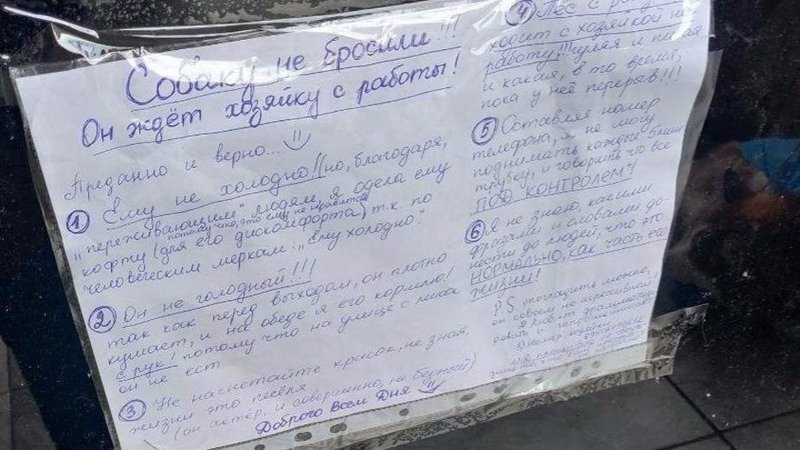 Собаку не бросили!!!
Он ждёт хозяйку с работы!
Преданно и верно...
① Ему не холодно!! но, благодаря,
"переживающим" людям, я одела ему
потому что, это ему не нравится
кофту (для его дискомфорта) т.к. по
человеческим меркам: "Ему холодно"
② Он не голодный!!!
так как перед выходом, он плотно
кушает, и на обеде я его кормлю!
с рук! потому что на улице с миски
он не ест
③ Не нагнетайте красок, не зная,
жизни это пёселя
(он актёр, и совершенно, не бедный)
Доброго Всем Дня
④ Пёс с
ходит с хозяйкой на
работу!!! гуляя и
и какая, в то время,
пока у неё перерыв!!!
⑤ Оставляя номер
телефона, я не могу
поднимать каждые 5 мин
трубку, и говорить что всё
ПОД КОНТРОЛЕМ!
⑥ Я не знаю, какими
фразами и словами до-
нести до людей, что это
НОРМАЛЬНО, как часть его
жизни!
P.S. угощать можно,
он